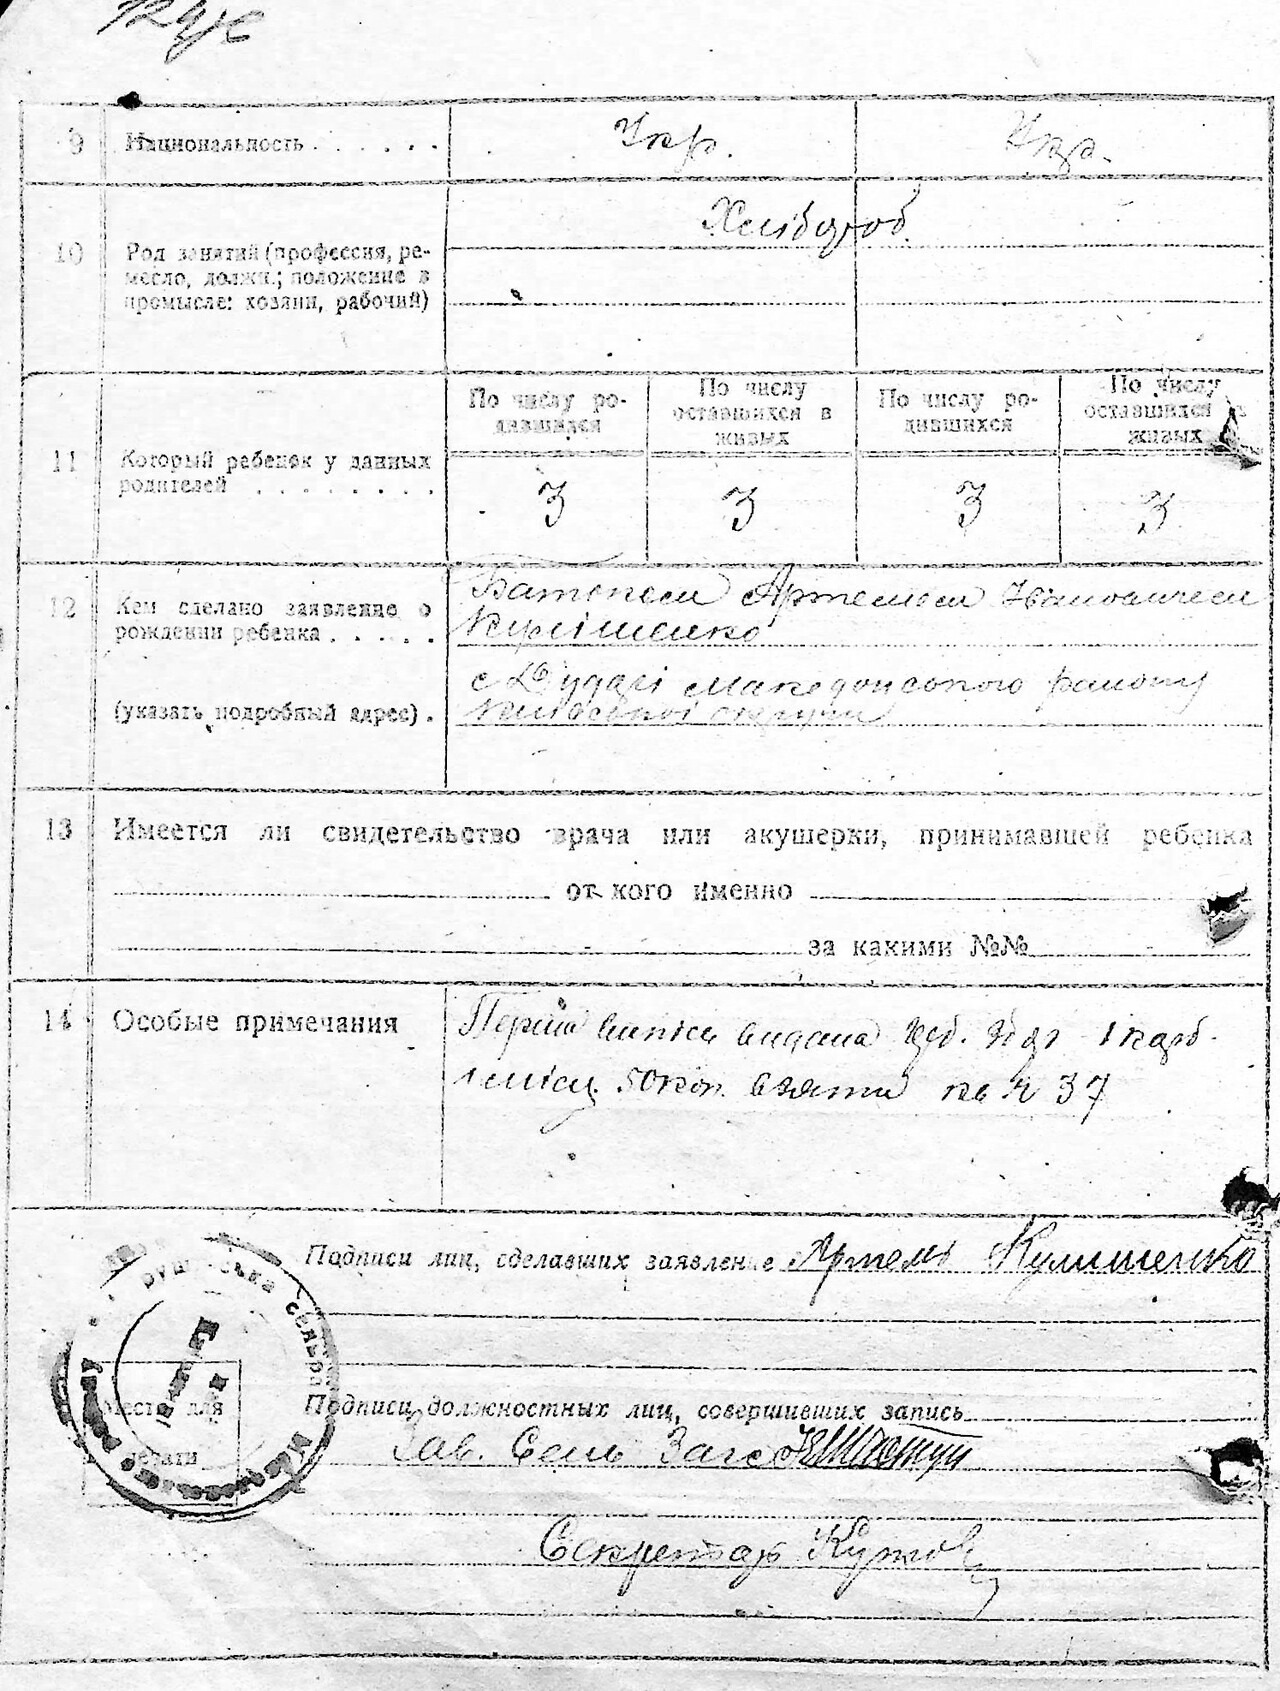 9 Национальность . . . . . . Укр. Укр.
10 Род занятий (профессия, ре-
месло, должн.; положение в
промысле: хозяин, рабочий)
Хлібороб.
11 Который ребенок у данных
родителей . . . . . . . .
По числу ро-
дившихся
По числу
оставшихся в
живых
По числу ро-
дившихся
По числу
оставшихся в
живых
3 3 3 3
12 Кем сделано заявление о
рождении ребенка . . . . .
(указать подробный адрес) .
Батьком Артемом Івановичем
Кулішенко
с Дударі Македонського району
Київської округи
13 Имеется ли свидетельство врача или акушерки, принимавшей ребенка
от кого именно
за какими №№
14 Особые примечания
Перша випись видана
50 коп. взято кв 37
Подписи лиц, сделавших заявление Артем Кулишенко
Место для
печати
Подписи должностных лиц, совершивших запись
Зав. Сель Загсом
Секретар